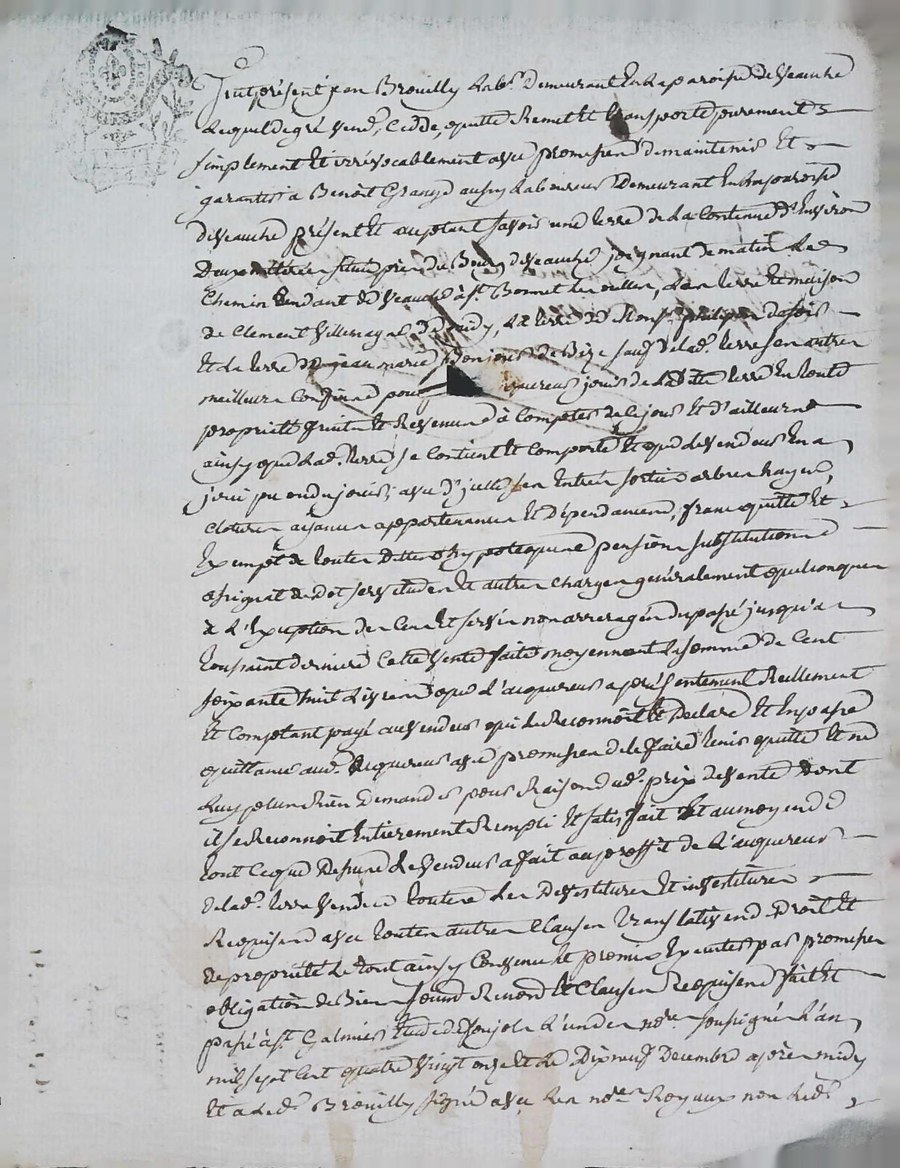 fut présent jean Brouilly lab.r Demeurant En la paroisse de veauche
Lequel de gré vend, Cedde, quitte Remet et transporte purement &
simplement Et irrévocablement avec promesse de maintenir Et
garantir a Benoit Grange aussy laboureur Demeurant En la paroisse
de veauche présent Et acceptant savoir une terre de La Contenue d'Environ
Deux située près du Bourg de veauche joignant de matin Le
Chemin tendant de veauche à s.t Bonnet les oulles, La terre Et maison
de Clement Villemagne De midy, La terre De Mons.r philipon de soir
Et La terre De jean marie Bonjour de Bize sauf de lad.e terre ses autres
meilleurs Confins pour jouir de Laditte terre En toute
propriété fruits Et Revenus à Compter de Ce jour Et d'ailleurs
ainsy que Lad.e terre se Contient Et Comporte Et que le vendeur En a
joui pu ou du jouir, avec d'jcelle ses Entrées sorties arbres hayes,
Clotures aisances appartenances Et Dépendances, franc quitte Et
Exempte de toutes Dettes hypoteques pensions substitutions
assignat de Dot servitudes Et autres Charges généralement quelconques
à L'Exception des Cens Et servis non arreragés du passé jusqu'a
toussaint derniere Cette vente faite moyennant La somme de Cent
soixante huit Livres que L'acquereur a présentement Réellement
Et Comptant payé au vendeur qui Le Reconnoit Et Declare Et En passe
quittance aud.t acquereur avec promesse de Le faire tenir quitte Et ne
Luy plus Rien Demander pour Raison dud.t prix de vente Dont
il se Reconnoit Entierement Rempli Et satisfait Et au moyen de
tout Ce que Dessus Le vendeur a fait au proffit de L'acquereur
de lad.e terre vendue toutes Les Devestitures Et investitures
Requises avec toutes autres Clauses translatives de Droit Et
de propriété Le tout ainsy Convenu Et promis Executer par promesses
obligation de Biens soumis Renon.s Et Clauses Requises fait Et
passé à s.t Galmier Etude de L'un des no.res soussignés L'an
mil sept Cent quatre vingt onze Et Le Dix neuf Decembre après midy
Et a Led.t Brouilly signé avec Les no.res Royaux non Led.t